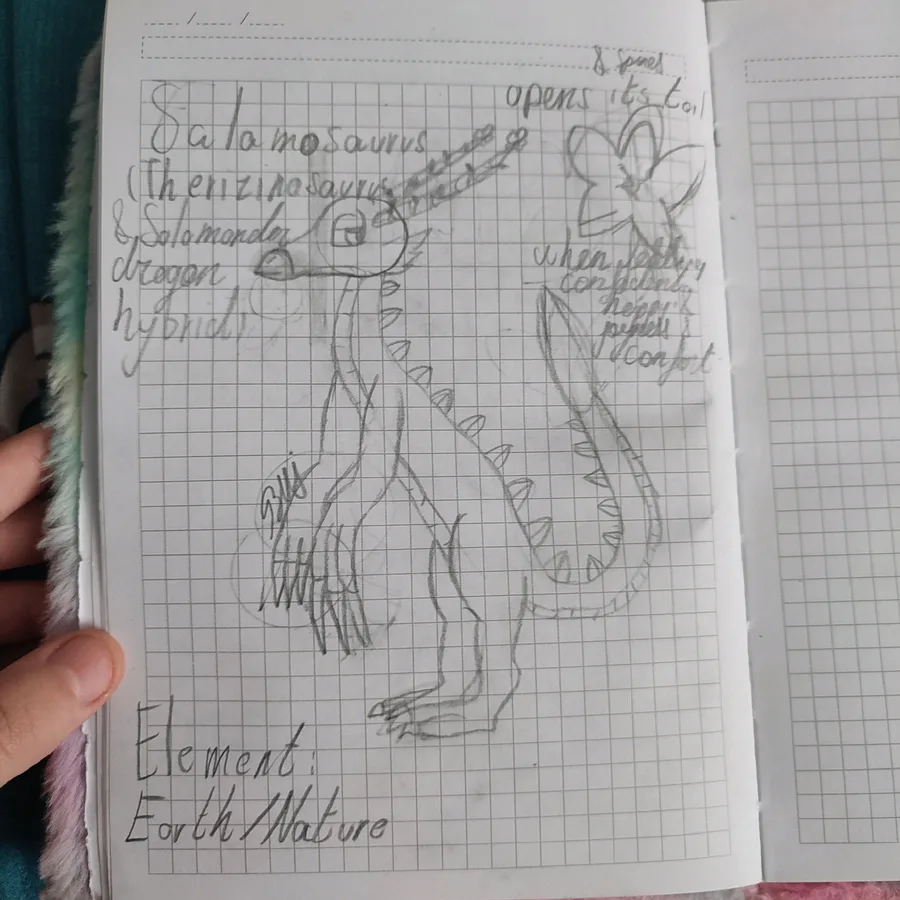 Salamosaurus
(Therizinosaurus
& Salamander
dragon
hybrid)
& Spines
opens its tail
when
confident,
happy &
confort
Element:
Earth/Nature